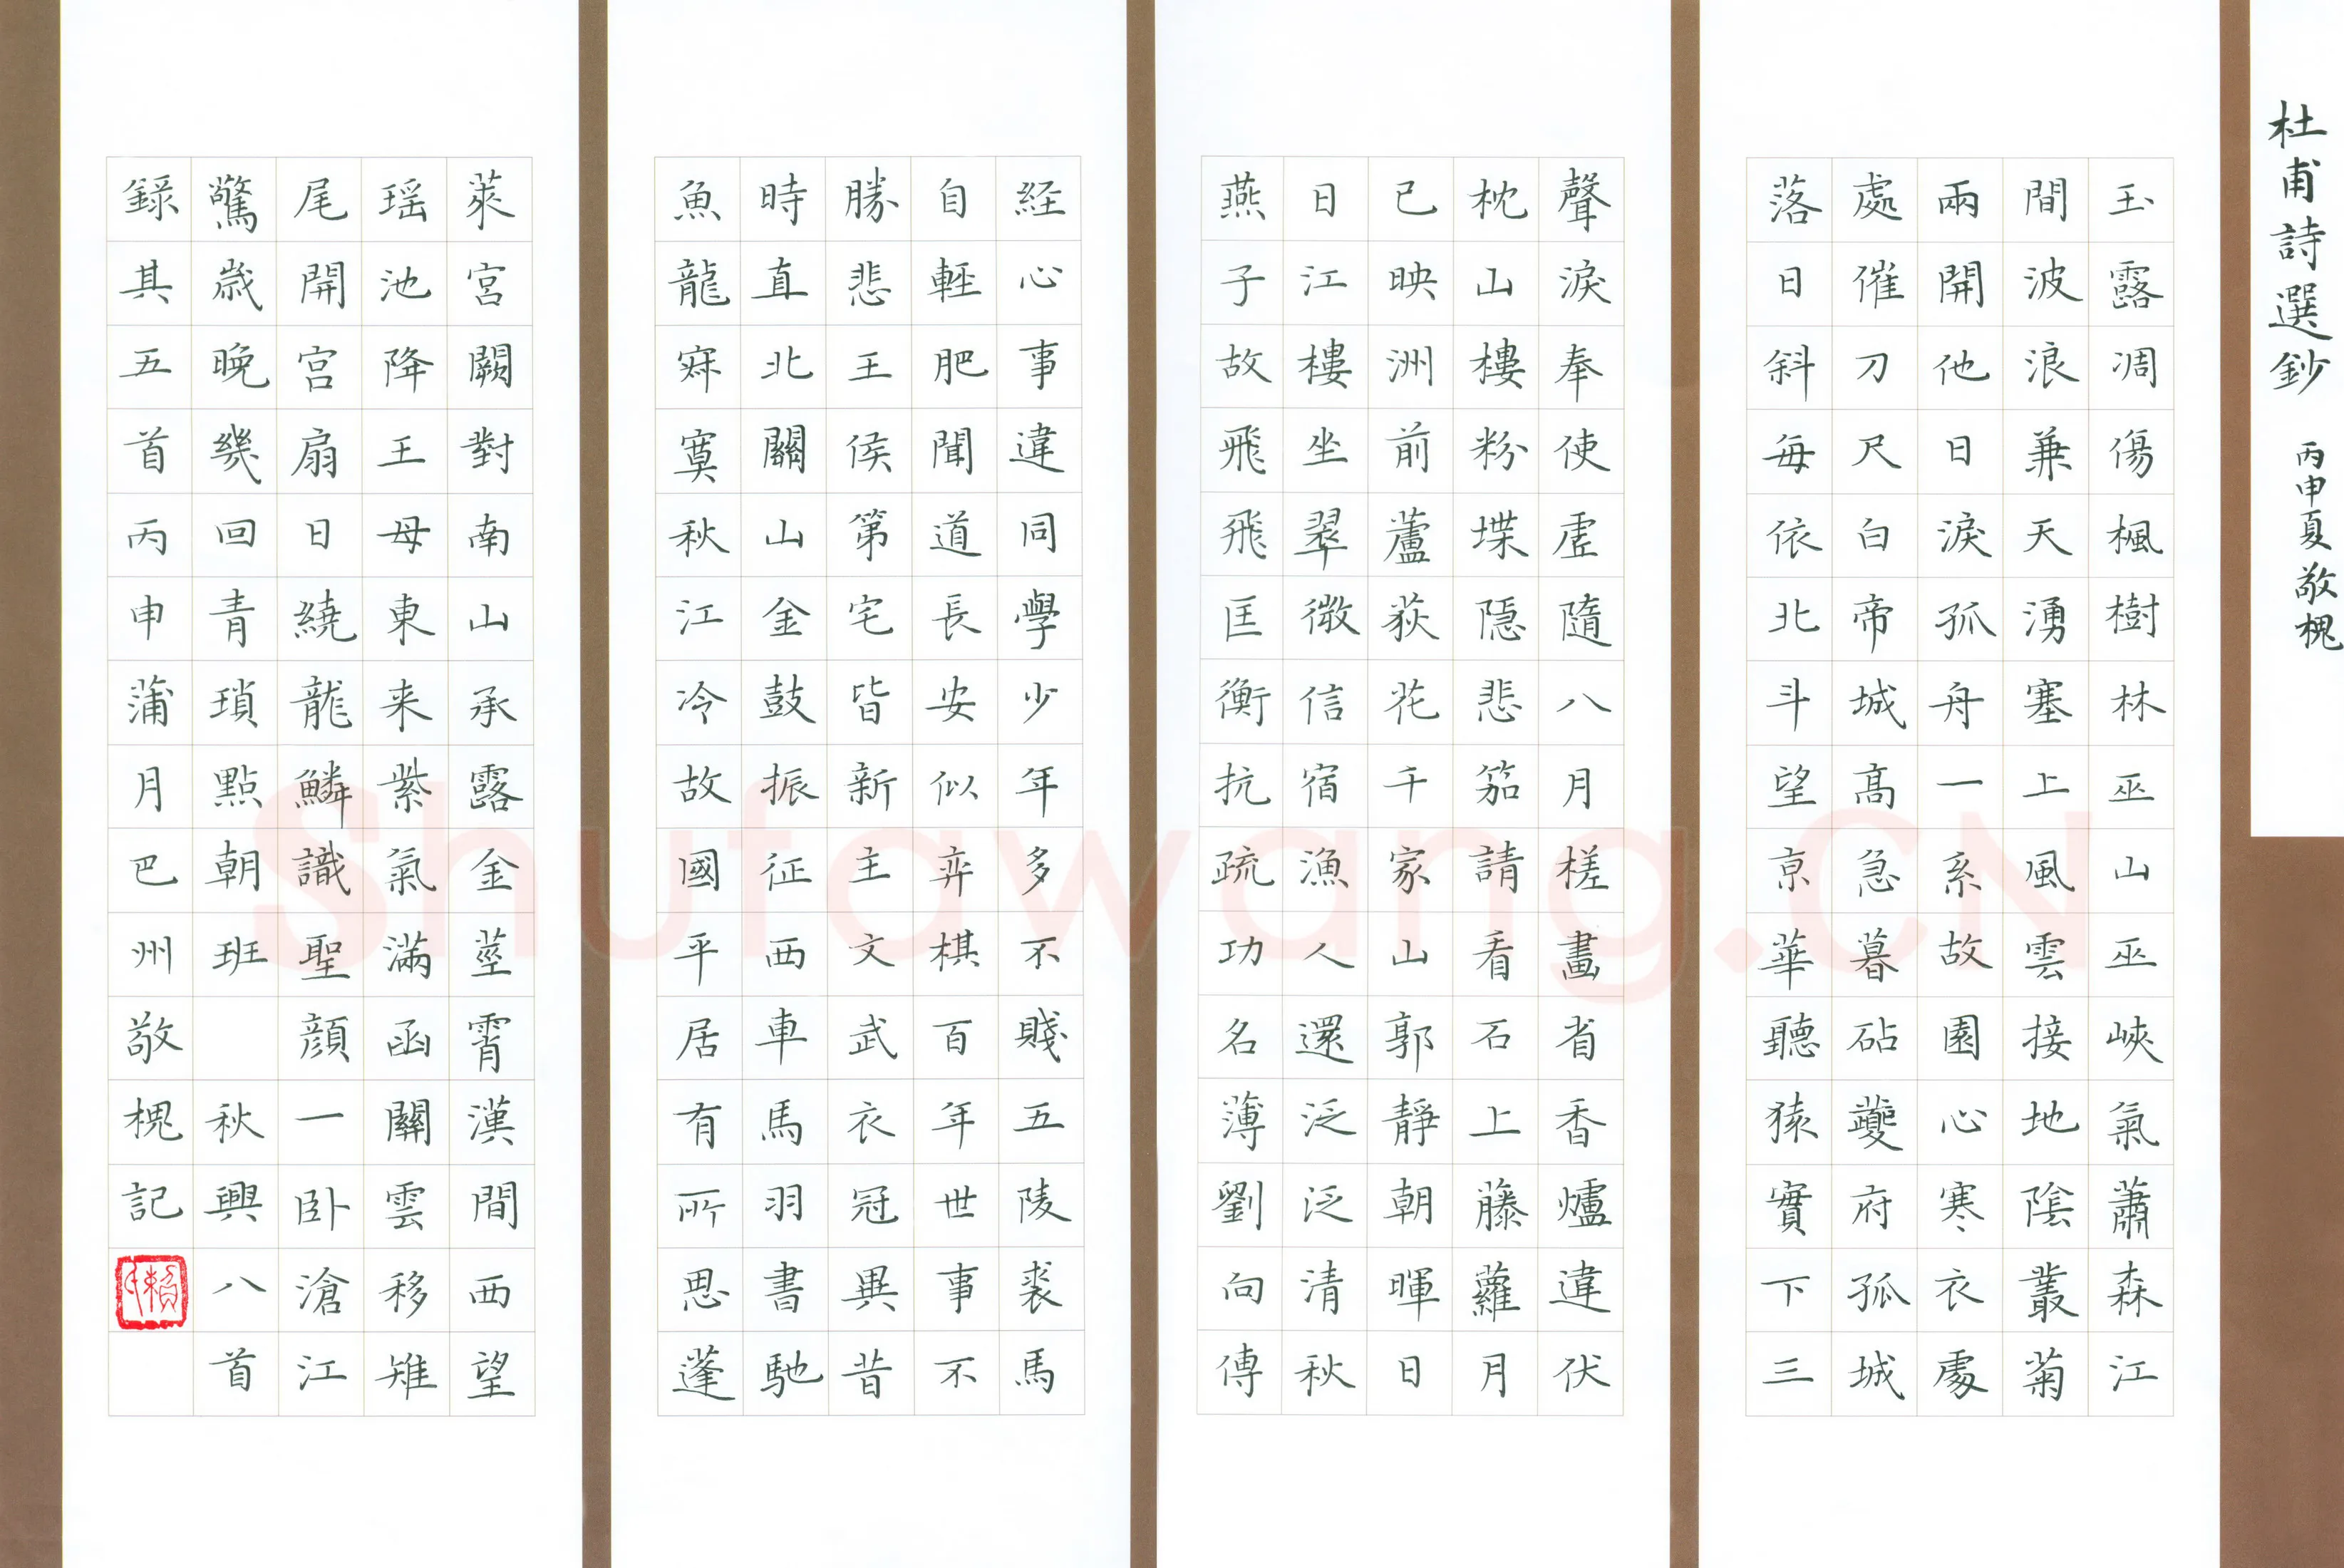 杜甫詩選鈔 丙申夏敬槐
玉露凋傷楓樹林巫山巫峽氣蕭森江
間波浪兼天湧塞上風雲接地陰叢菊
兩開他日淚孤舟一系故園心寒衣處
處催刀尺白帝城高急暮砧夔府孤城
落日斜每依北斗望京華聽猿實下三
聲淚奉使虛隨八月槎畫省香爐違伏
枕山樓粉堞隱悲笳請看石上藤蘿月
已映洲前蘆荻花千家山郭靜朝暉日
日江樓坐翠微信宿漁人還泛泛清秋
燕子故飛飛匡衡抗疏功名薄劉向傳
經心事違同學少年多不賤五陵裘馬
自輕肥聞道長安似弈棋百年世事不
勝悲王侯第宅皆新主文武衣冠異昔
時直北關山金鼓振征西車馬羽書馳
魚龍寂寞秋江冷故國平居有所思蓬
萊宮闕對南山承露金莖霄漢間西望
瑶池降王母東来紫氣滿函關雲移雉
尾開宮扇日繞龍鱗識聖顔一卧滄江
驚歲晚幾回青瑣點朝班 秋興八首
録其五首丙申蒲月巴州敬槐記
Shufawang.CN